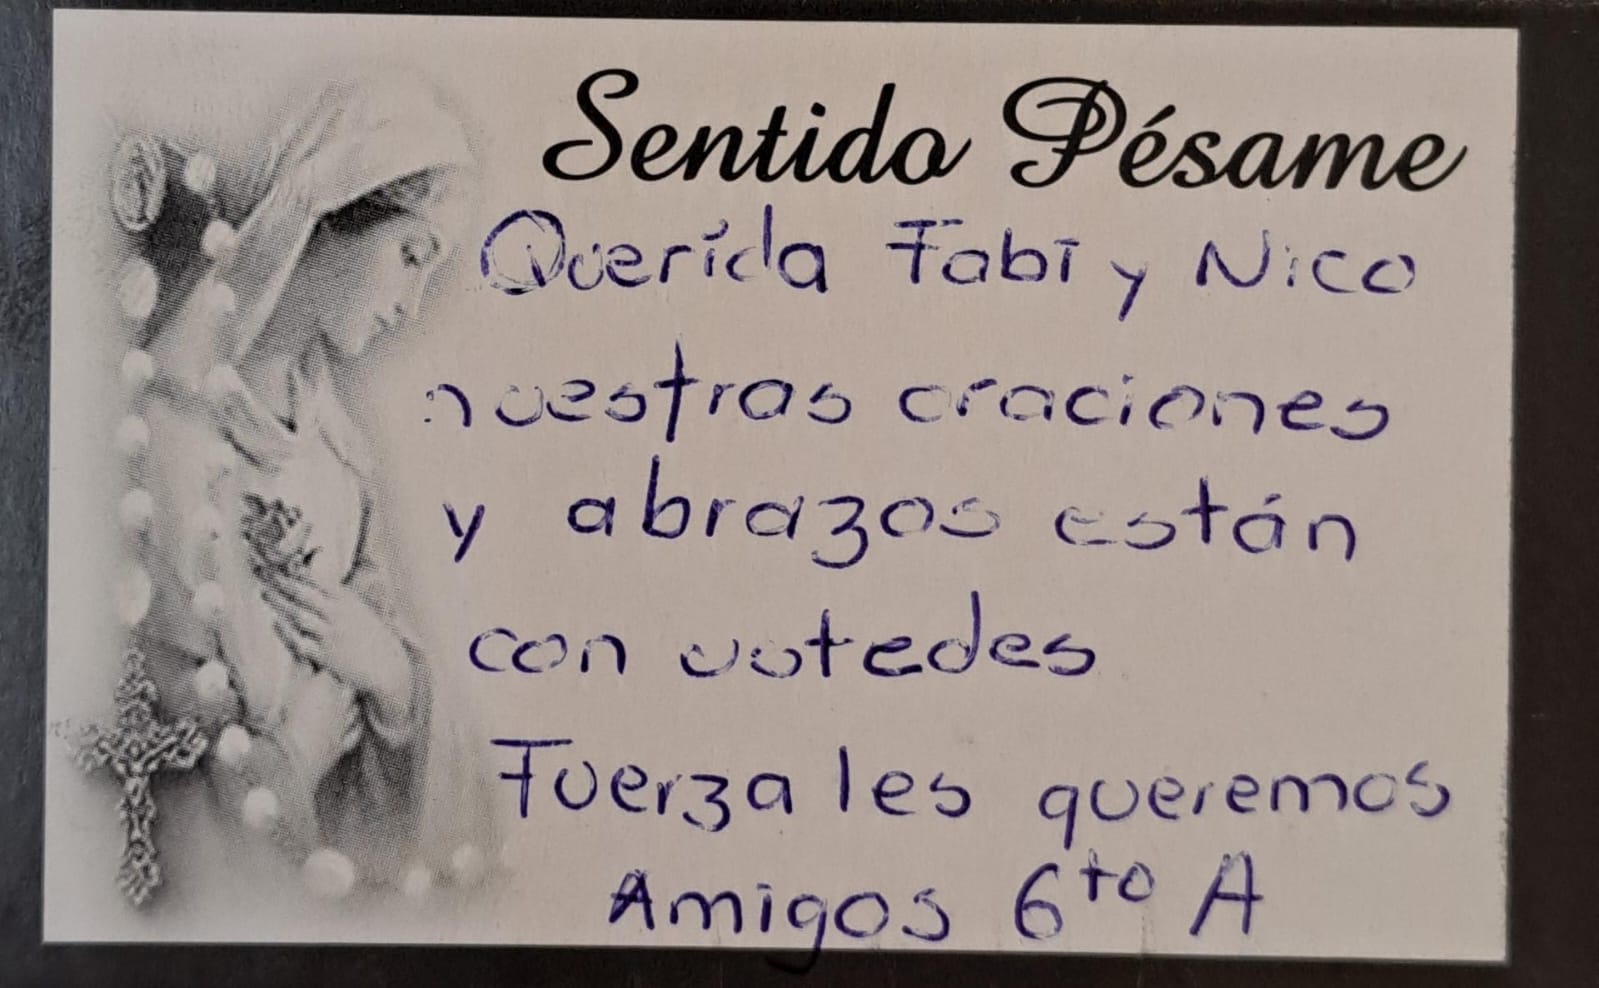 Sentido Pésame
Querida Fabi y Nico
nuestras oraciones
y abrazos están
con ustedes
Fuerza les queremos
Amigos 6to A